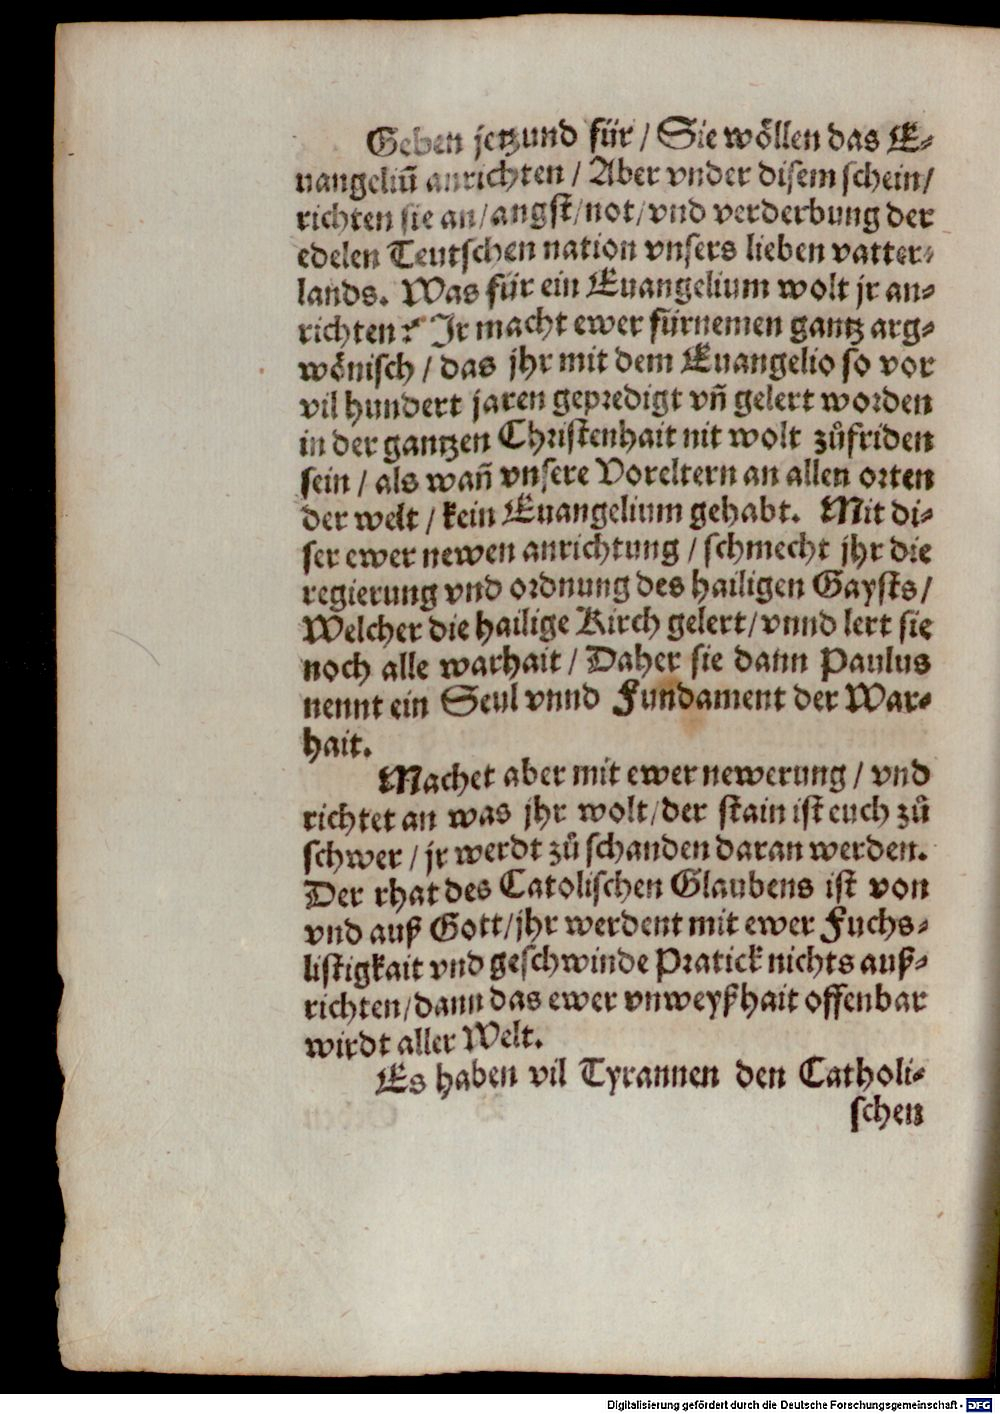 Geben jetzund für / Sie wöllen das E⸗
uangeliū anrichten / Aber vnder disem schein/
richten sie an/ angst/not/vnd verderbung der
edelen Teutschen nation vnsers lieben vatter⸗
lands. Was für ein Euangelium wolt jr an⸗
richten? Ir macht ewer fürnemen gantz arg⸗
wönisch / das jhr mit dem Euangelio so vor
vil hundert jaren gepredigt vñ gelert worden
in der gantzen Christenhait nit wolt zůfriden
sein / als wañ vnsere Voreltern an allen orten
der welt / kein Euangelium gehabt. Mit di⸗
ser ewer newen anrichtung / schmecht jhr die
regierung vnd ordnung des hailigen Gaysts/
Welcher die hailige Kirch gelert/ vnnd lert sie
noch alle warhait / Daher sie dann Paulus
nennt ein Seul vnnd Fundament der War⸗
hait.
Machet aber mit ewer newerung / vnd
richtet an was jhr wolt/der stain ist euch zů
schwer / jr werdt zů schanden daran werden.
Der rhat des Catolischen Glaubens ist von
vnd auß Gott/jhr werdent mit ewer Fuchs⸗
listigkait vnd geschwinde Pratick nichts auß⸗
richten/dann das ewer vnweyßhait offenbar
wirdt aller Welt.
Es haben vil Tyrannen den Catholi⸗
schen
Digitalisierung gefördert durch die Deutsche Forschungsgemeinschaft - DFG